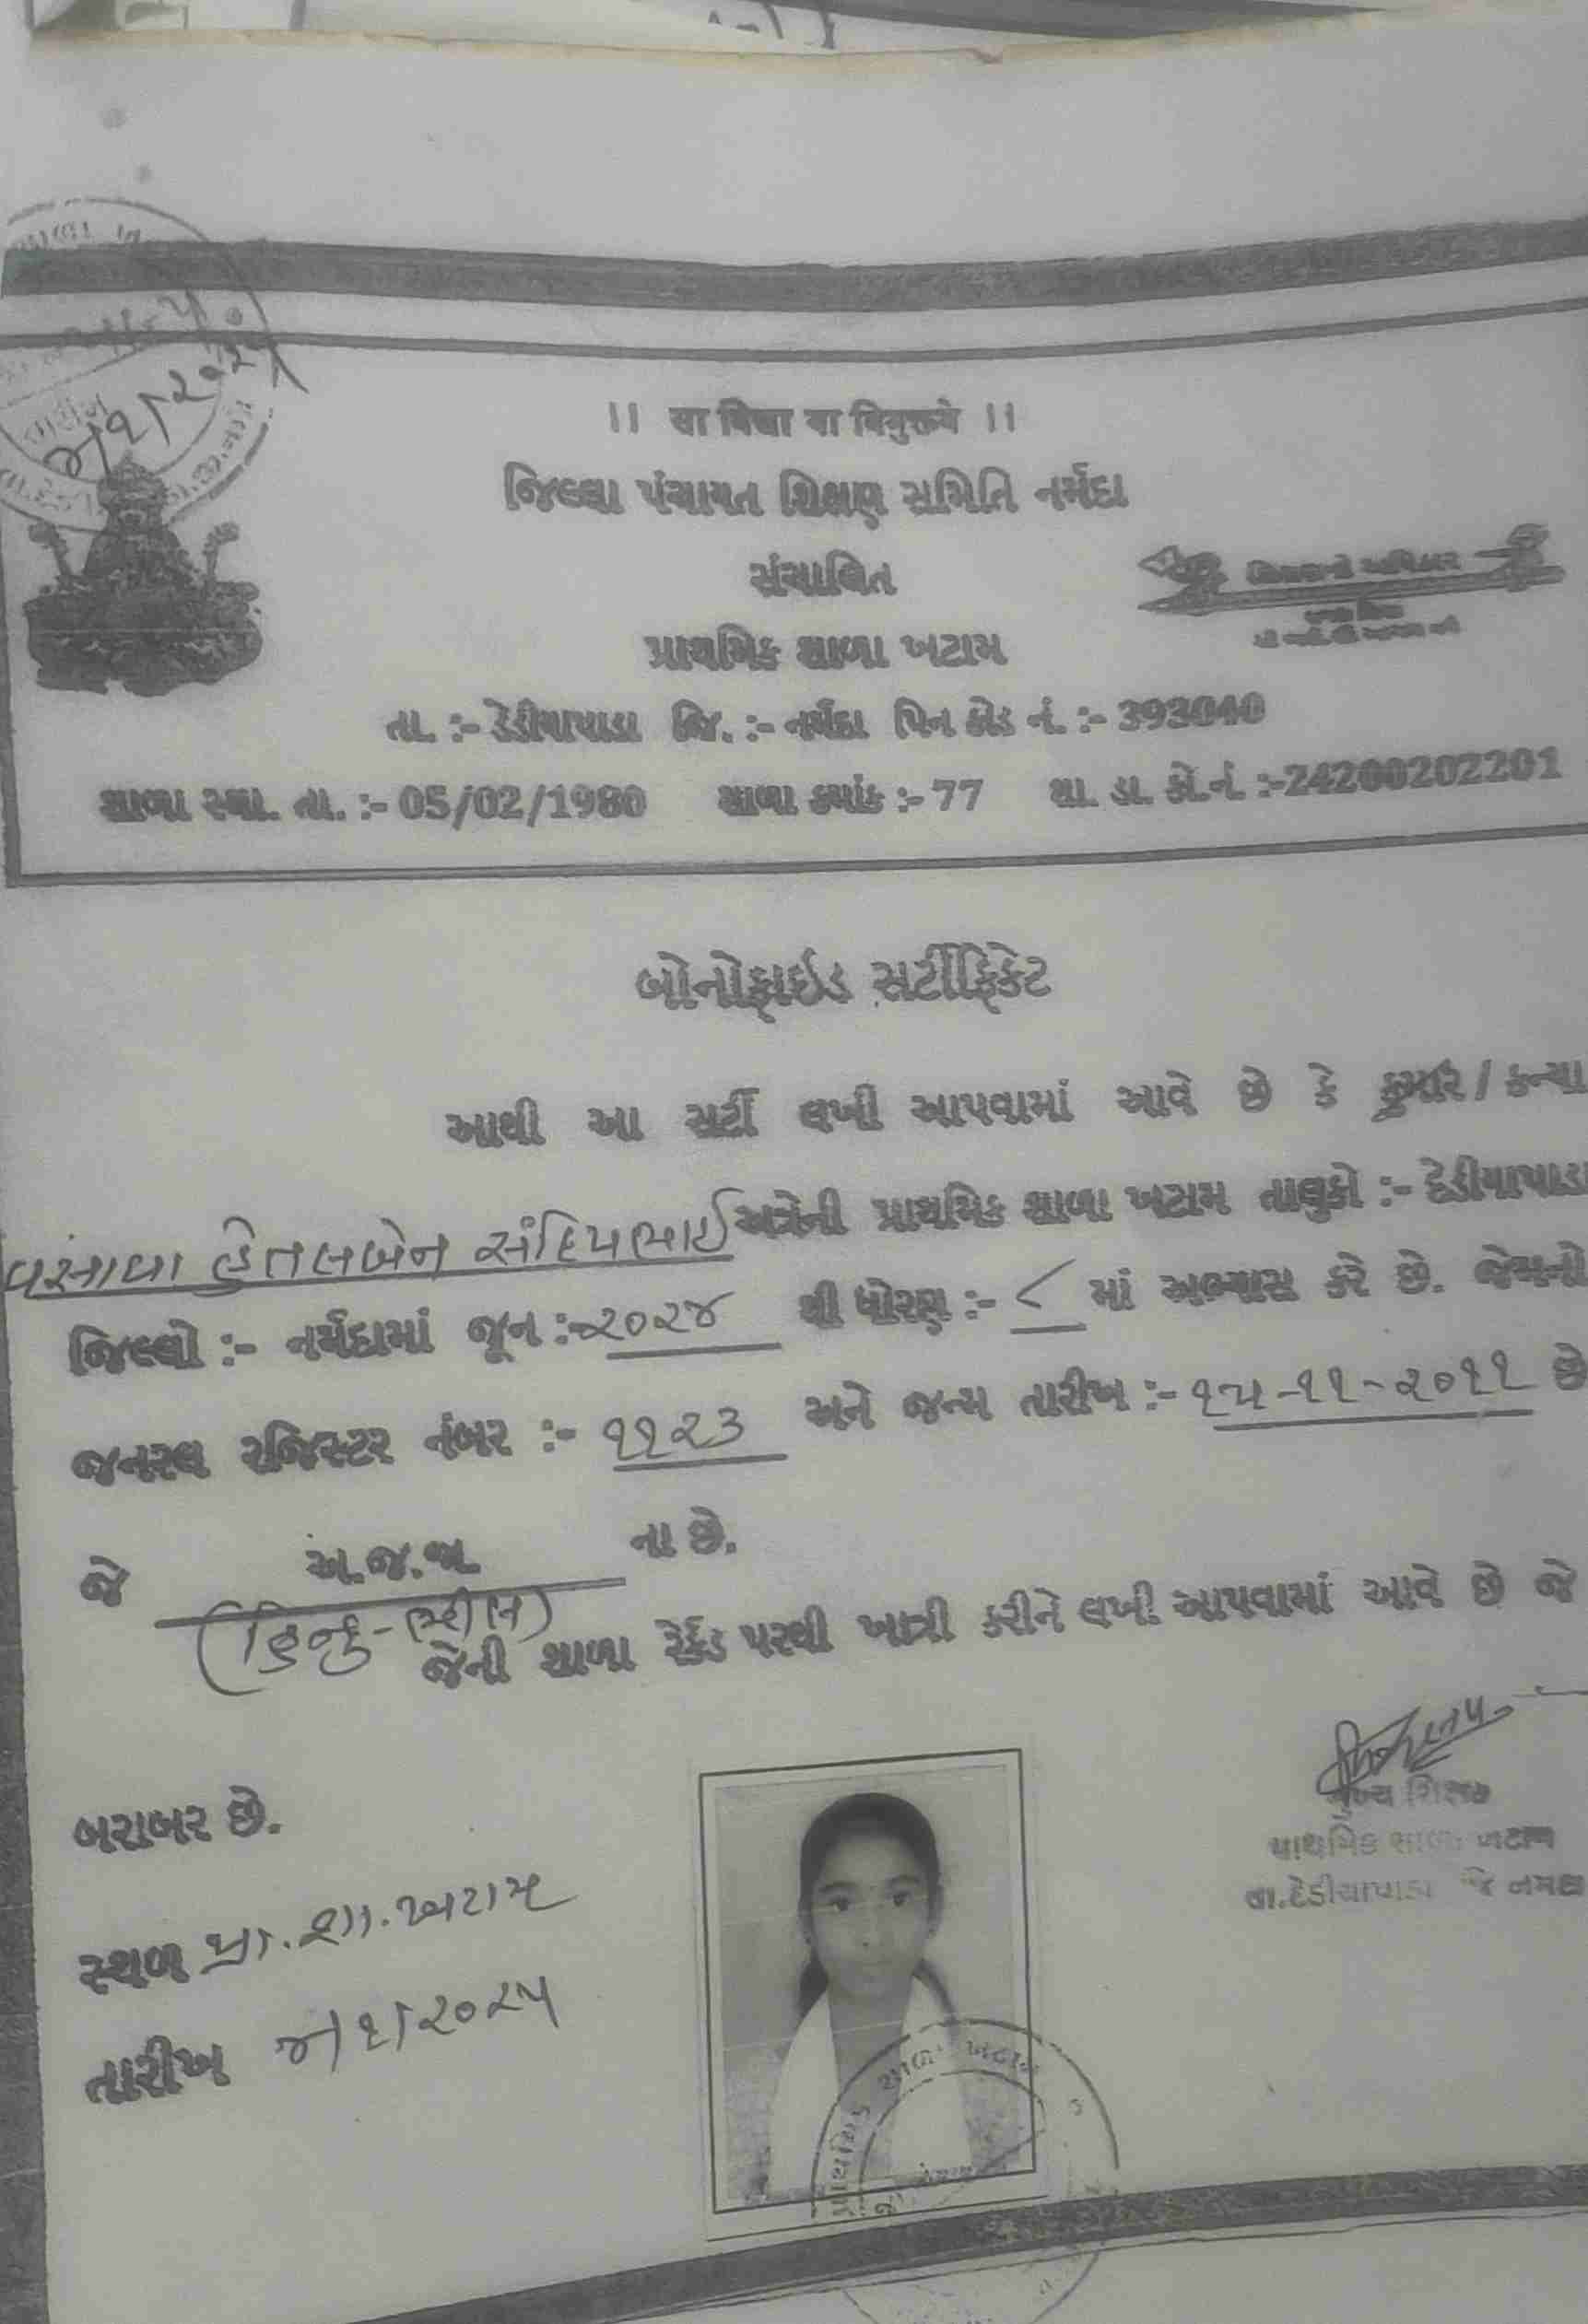 || सा विद्या या विमुक्तये ||
જિલ્લા પંચાયત શિક્ષણ સમિતિ નર્મદા
સંચાલિત
પ્રાથમિક શાળા ખટામ
તા. :- દેડીયાપાડા જિ. :- નર્મદા પિન કોડ નં. :- 393040
શાળા સ્થા. તા. :- 05/02/1980 શાળા ક્રમાંક :- 77 શા. ડા. કો.નં. :-24200202201
બોનોફાઇડ સર્ટીફિકેટ
આથી આ સર્ટી લખી આપવામાં આવે છે કે કુમાર / કન્યા
વસાવા હેતલબેન સંદિપભાઇ અત્રેની પ્રાથમિક શાળા ખટામ તાલુકો :- દેડીયાપાડા
જિલ્લો :- નર્મદામાં જૂન :- ૨૦૨૪ થી ધોરણ :- ૮ માં અભ્યાસ કરે છે. જેમનો
જનરલ રજિસ્ટર નંબર :- ૧૧૨૩ અને જન્મ તારીખ :- ૧૫-૧૧-૨૦૧૧ છે
જે અ.જ.જા. ના છે.
(હિન્દુ-ભીલ)
જેની શાળા રેકૅડ પરથી ખાત્રી કરીને લખી આપવામાં આવે છે જે
બરાબર છે.
મુખ્ય શિક્ષક
પ્રાથમિક શાળા ખટામ
તા.દેડીયાપાડા જિ નર્મદા
સ્થળ પ્રા.શા.ખટામ
તારીખ ૪/૧/૨૦૨૫
પ્રાથમિક શાળા ખટામ